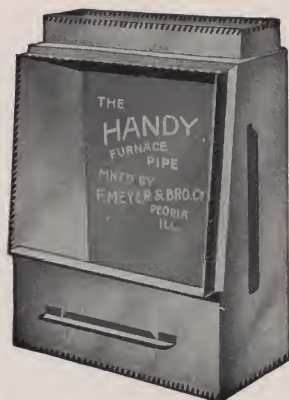 THE
HANDY
FURNACE
PIPE
MN'F'D BY
F. MEYER & BRO. Co
PEORIA
ILL.